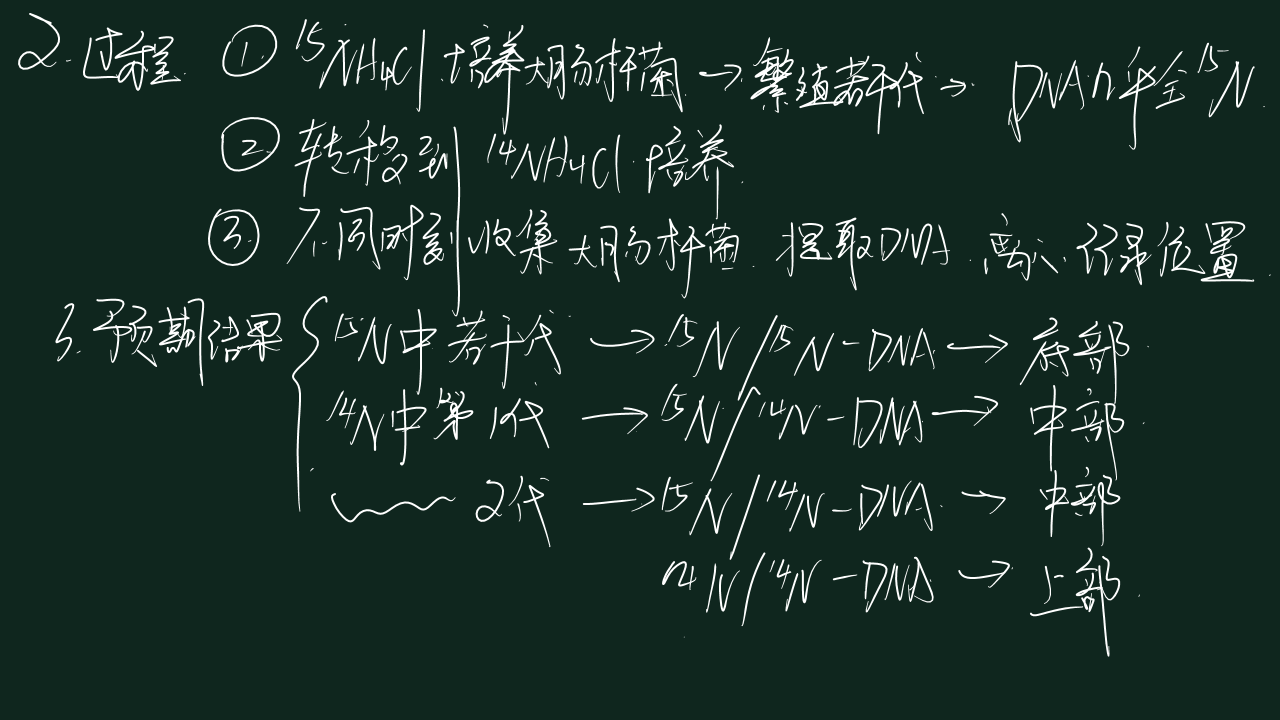 2. 过程 ① ¹⁵NH₄Cl 培养大肠杆菌 → 繁殖若干代 → DNA几乎全¹⁵N
② 转移到 ¹⁴NH₄Cl 培养
③ 不同时刻收集大肠杆菌 提取DNA 离心 记录位置
3. 预期结果 { ¹⁵N中若干代 → ¹⁵N/¹⁵N-DNA → 底部
¹⁴N中第1代 → ¹⁵N/¹⁴N-DNA → 中部
2代 → ¹⁵N/¹⁴N-DNA → 中部
¹⁴N/¹⁴N-DNA → 上部